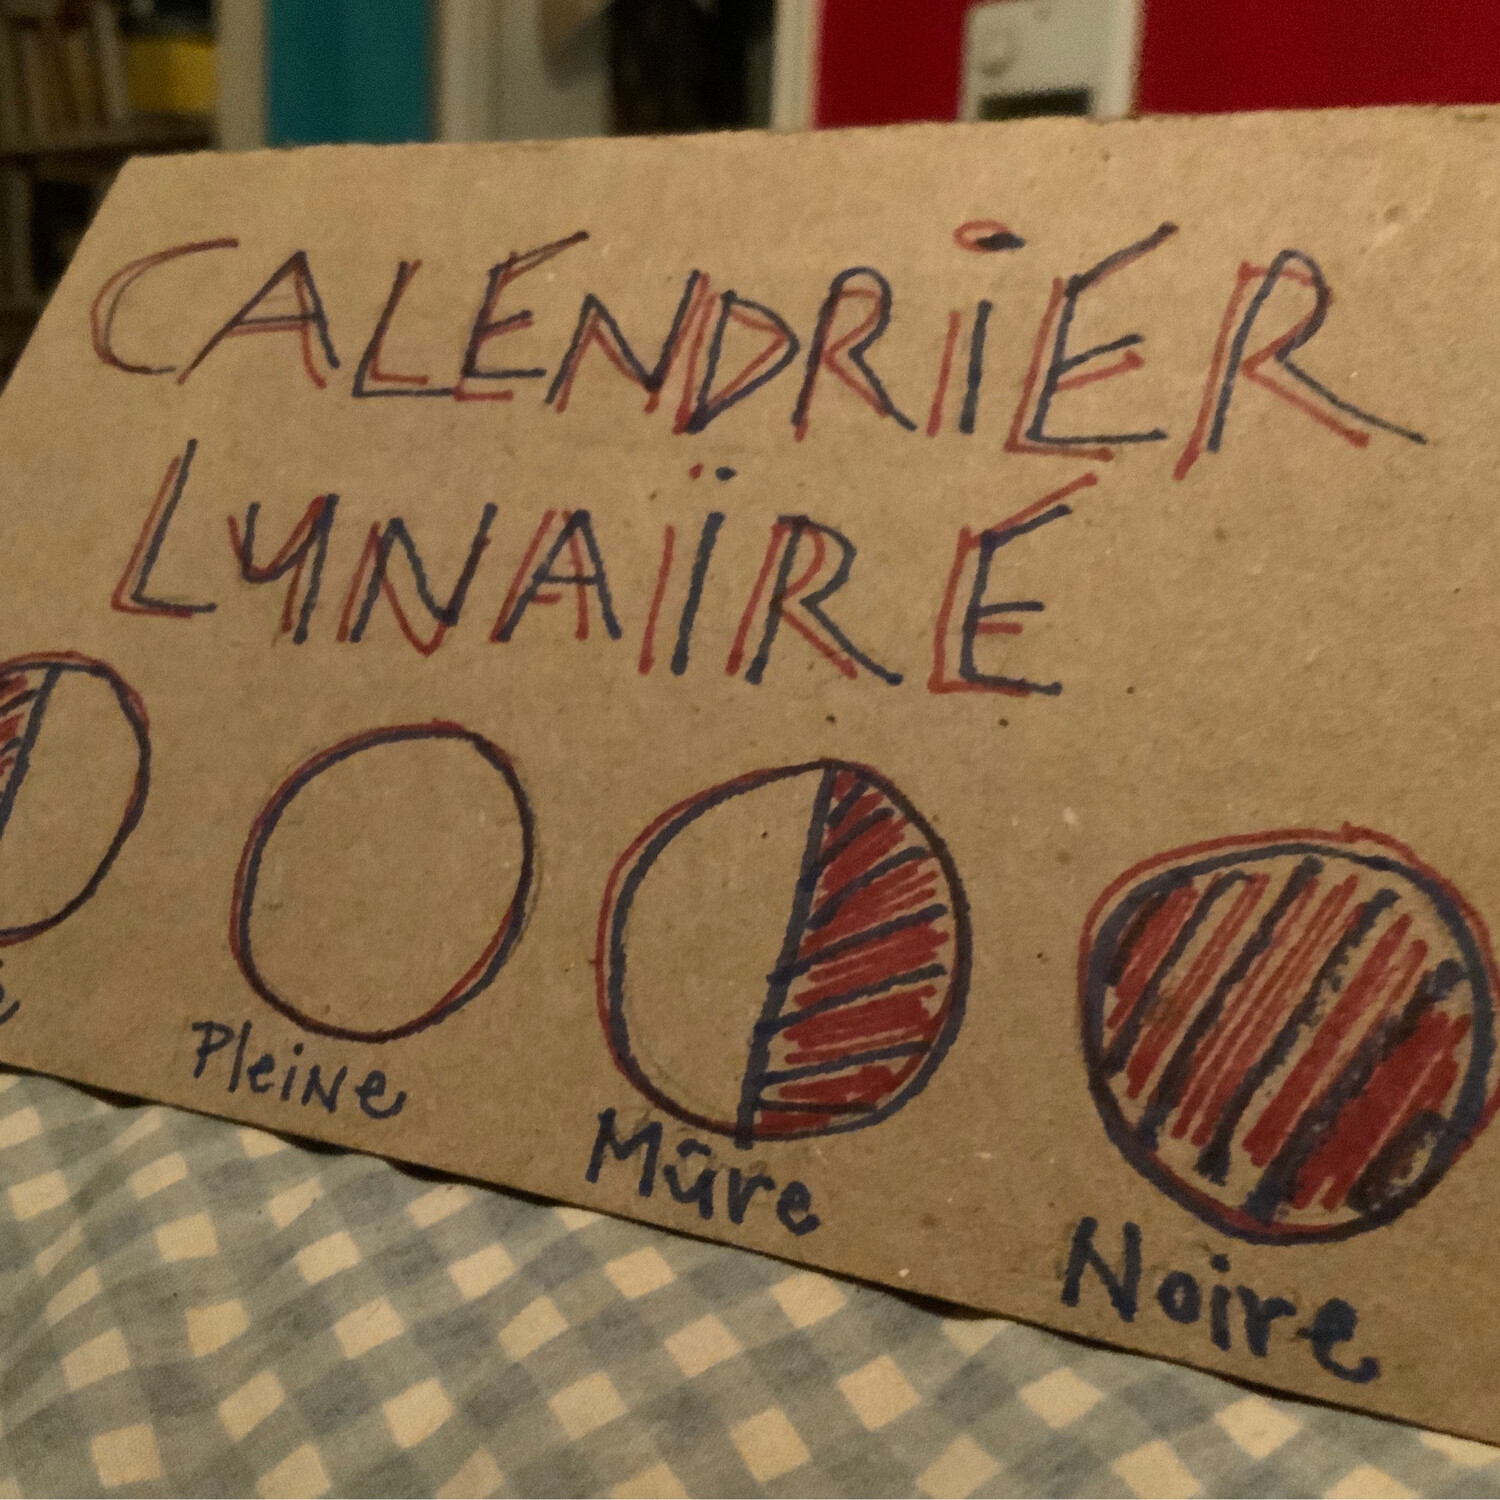 CALENDRiER
LUNAiRE
Pleine
Mûre
Noire